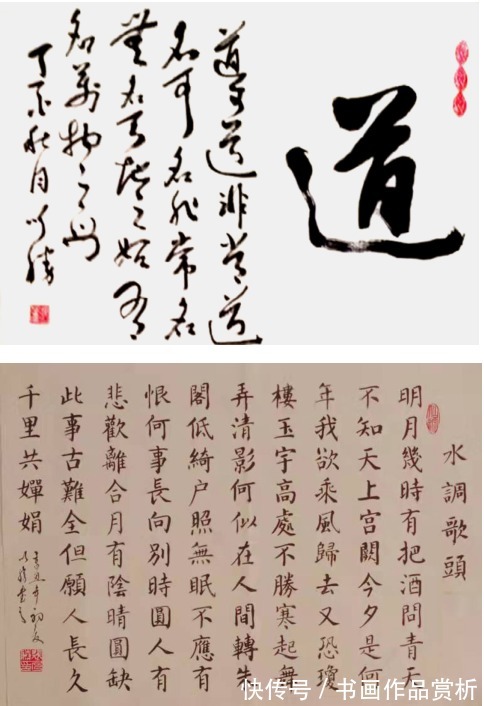 道
道可道非常道
名可名非常名
無名天地之始有
名萬物之母
丁亥秋月
水調歌頭
明月幾時有把酒問青天
不知天上宮闕今夕是何
年我欲乘風歸去又恐瓊
樓玉宇高處不勝寒起舞
弄清影何似在人間轉朱
閣低綺户照無眠不應有
恨何事長向別時圓人有
悲歡離合月有陰晴圓缺
此事古難全但願人長久
千里共嬋娟
快传号/书画作品赏析